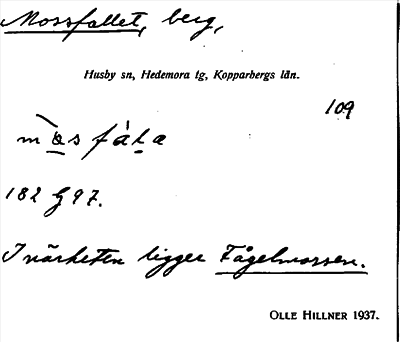 Mossfallet, berg,
Husby sn, Hedemora tg, Kopparbergs län.
109
182 G 97.
I närheten ligger Fågelmossen.
OLLE HILLNER 1937.